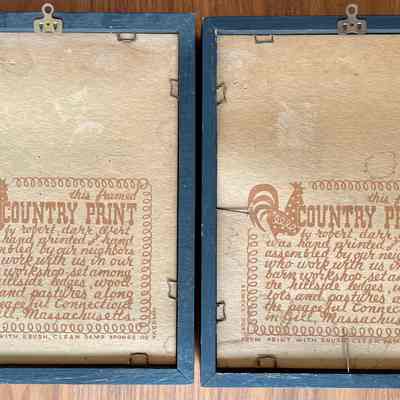 this framed
COUNTRY PRINT
by robert darr wert
hand printed and hand
assembled by our neighbors
work with us in our
workshop set among
hillside ledges, wood
and pastures along
peaceful Connecticut
in Gill, Massachusetts
WITH BRUSH, CLEAN DAMP SPONGE OR
this f
COUNTRY PR
by robert darr
was hand printed
assembled by our ne
who work with us in
barn workshop set
the hillside ledges, w
lots and pastures a
the peaceful Connec
in Gill, Massachus
FROM PRINT WITH BRUSH, CLEAN DA